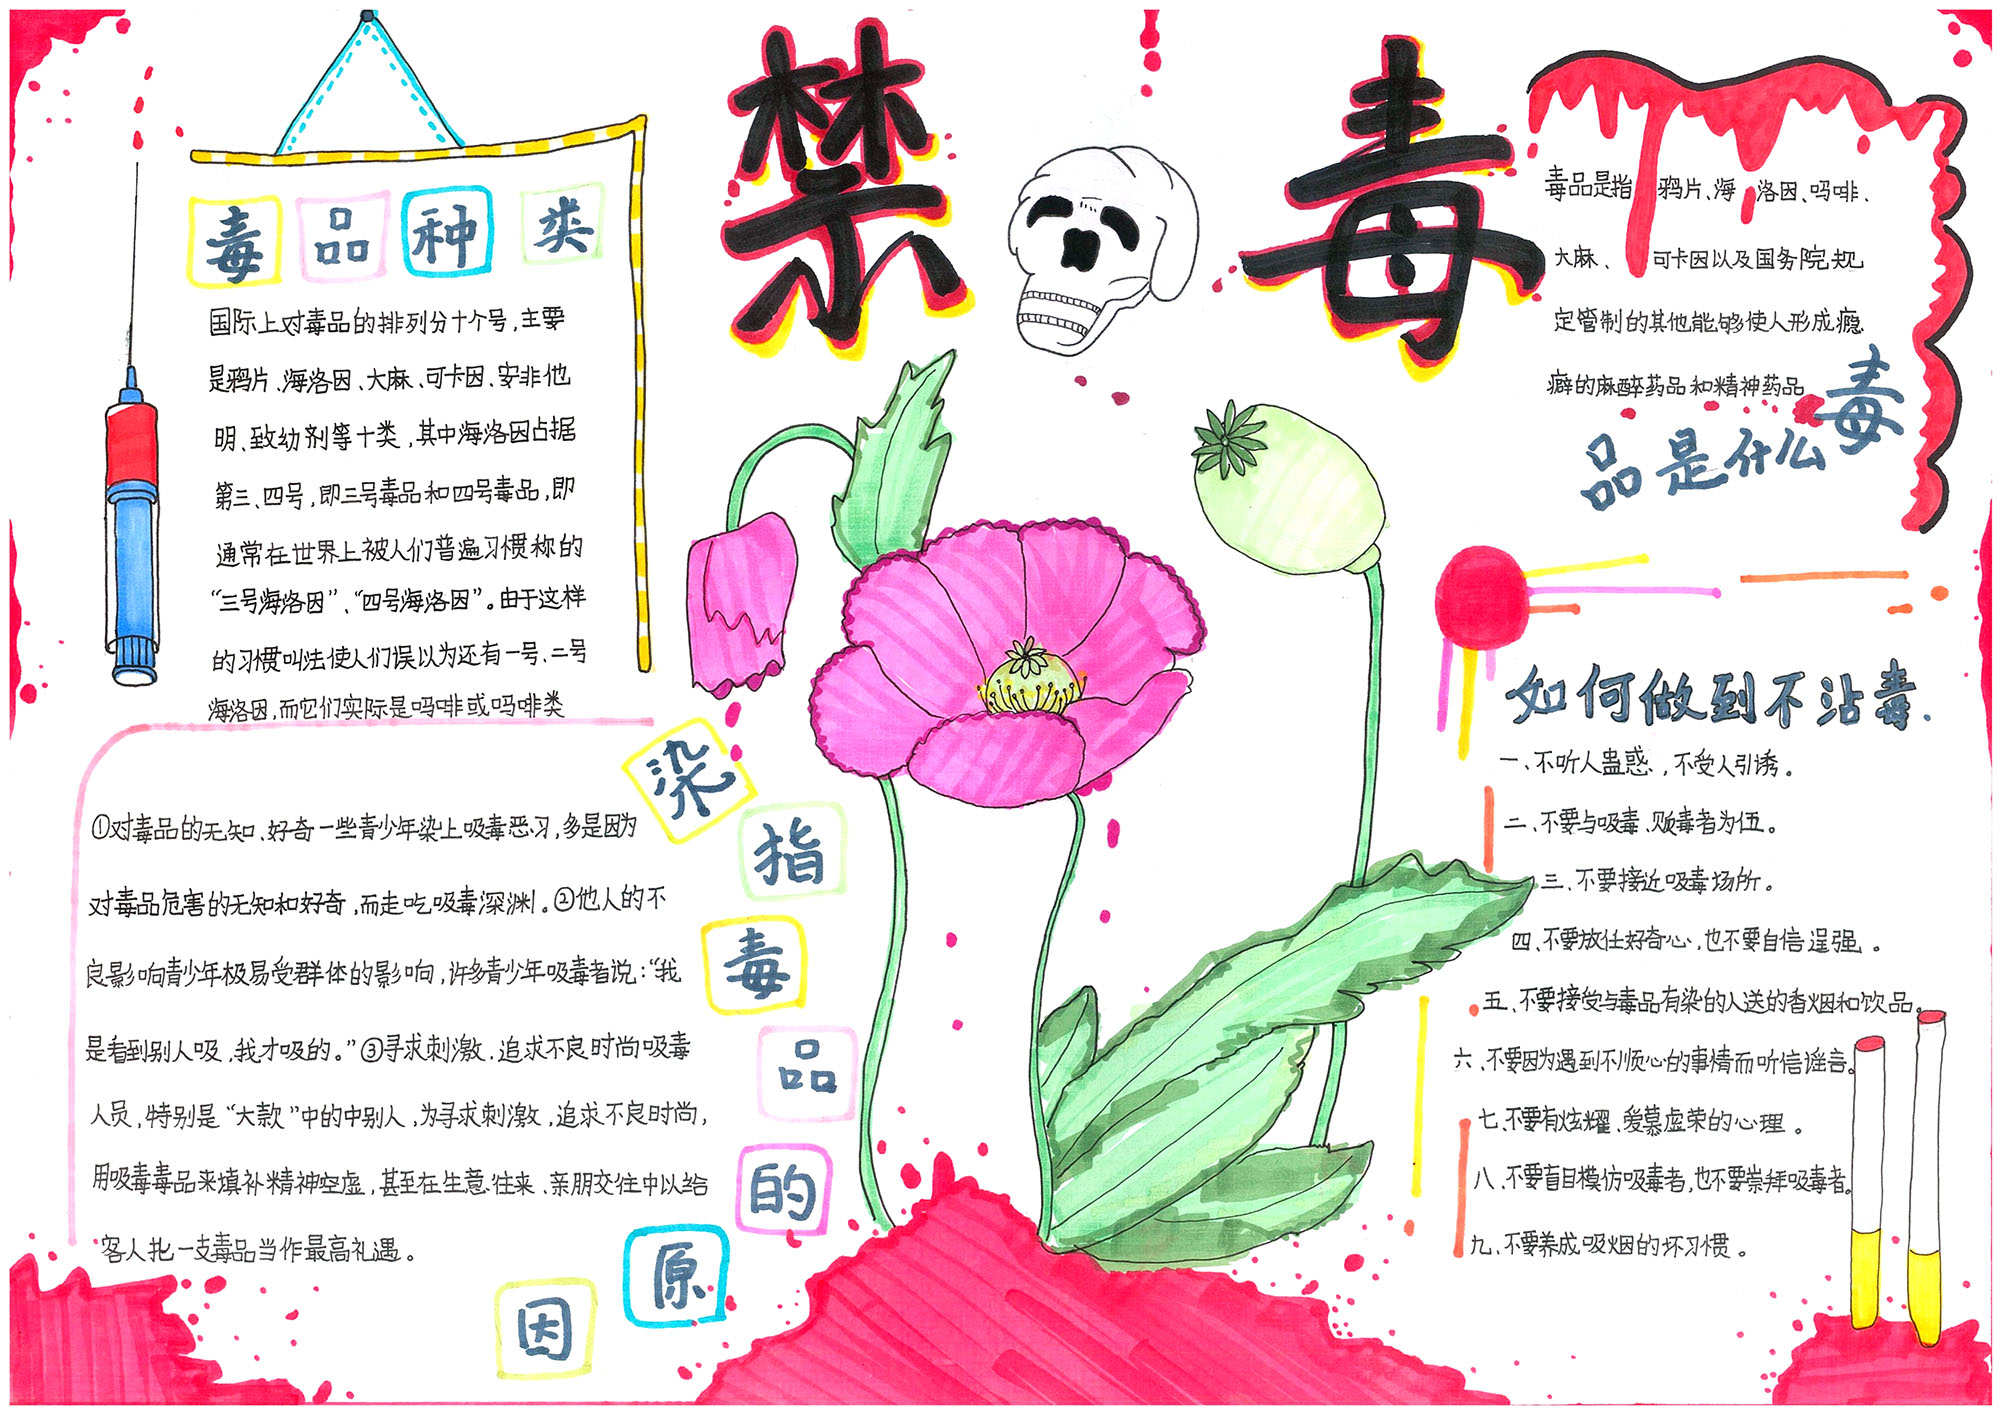 禁毒
毒品种类
国际上对毒品的排列分十个号,主要
是鸦片、海洛因、大麻、可卡因、安非他
明、致幼剂等十类,其中海洛因占据
第三、四号,即三号毒品和四号毒品,即
通常在世界上被人们普遍习惯称的
“三号海洛因”、“四号海洛因”。由于这样
的习惯叫法使人们误以为还有一号、二号
海洛因,而它们实际是吗啡或吗啡类
毒品是指鸦片、海洛因、吗啡、
大麻、可卡因以及国务院规
定管制的其他能够使人形成瘾
癖的麻醉药品和精神药品
毒
品是什么
染指毒品的原因
①对毒品的无知、好奇一些青少年染上吸毒恶习,多是因为
对毒品危害的无知和好奇,而走吃吸毒深渊。②他人的不
良影响青少年极易受群体的影响,许多青少年吸毒者说:“我
是看到别人吸,我才吸的。”③寻求刺激、追求不良时尚吸毒
人员,特别是“大款”中的中别人,为寻求刺激,追求不良时尚,
用吸毒毒品来填补精神空虚,甚至在生意往来、亲朋交往中以给
客人扎一支毒品当作最高礼遇。
如何做到不沾毒.
一、不听人蛊惑,不受人引诱。
二、不要与吸毒、贩毒者为伍。
三、不要接近吸毒场所。
四、不要放任好奇心,也不要自信逞强。
五、不要接受与毒品有染的人送的香烟和饮品。
六、不要因为遇到不顺心的事情而听信谣言。
七、不要有炫耀、爱慕虚荣的心理。
八、不要盲目模仿吸毒者,也不要崇拜吸毒者。
九、不要养成吸烟的坏习惯。